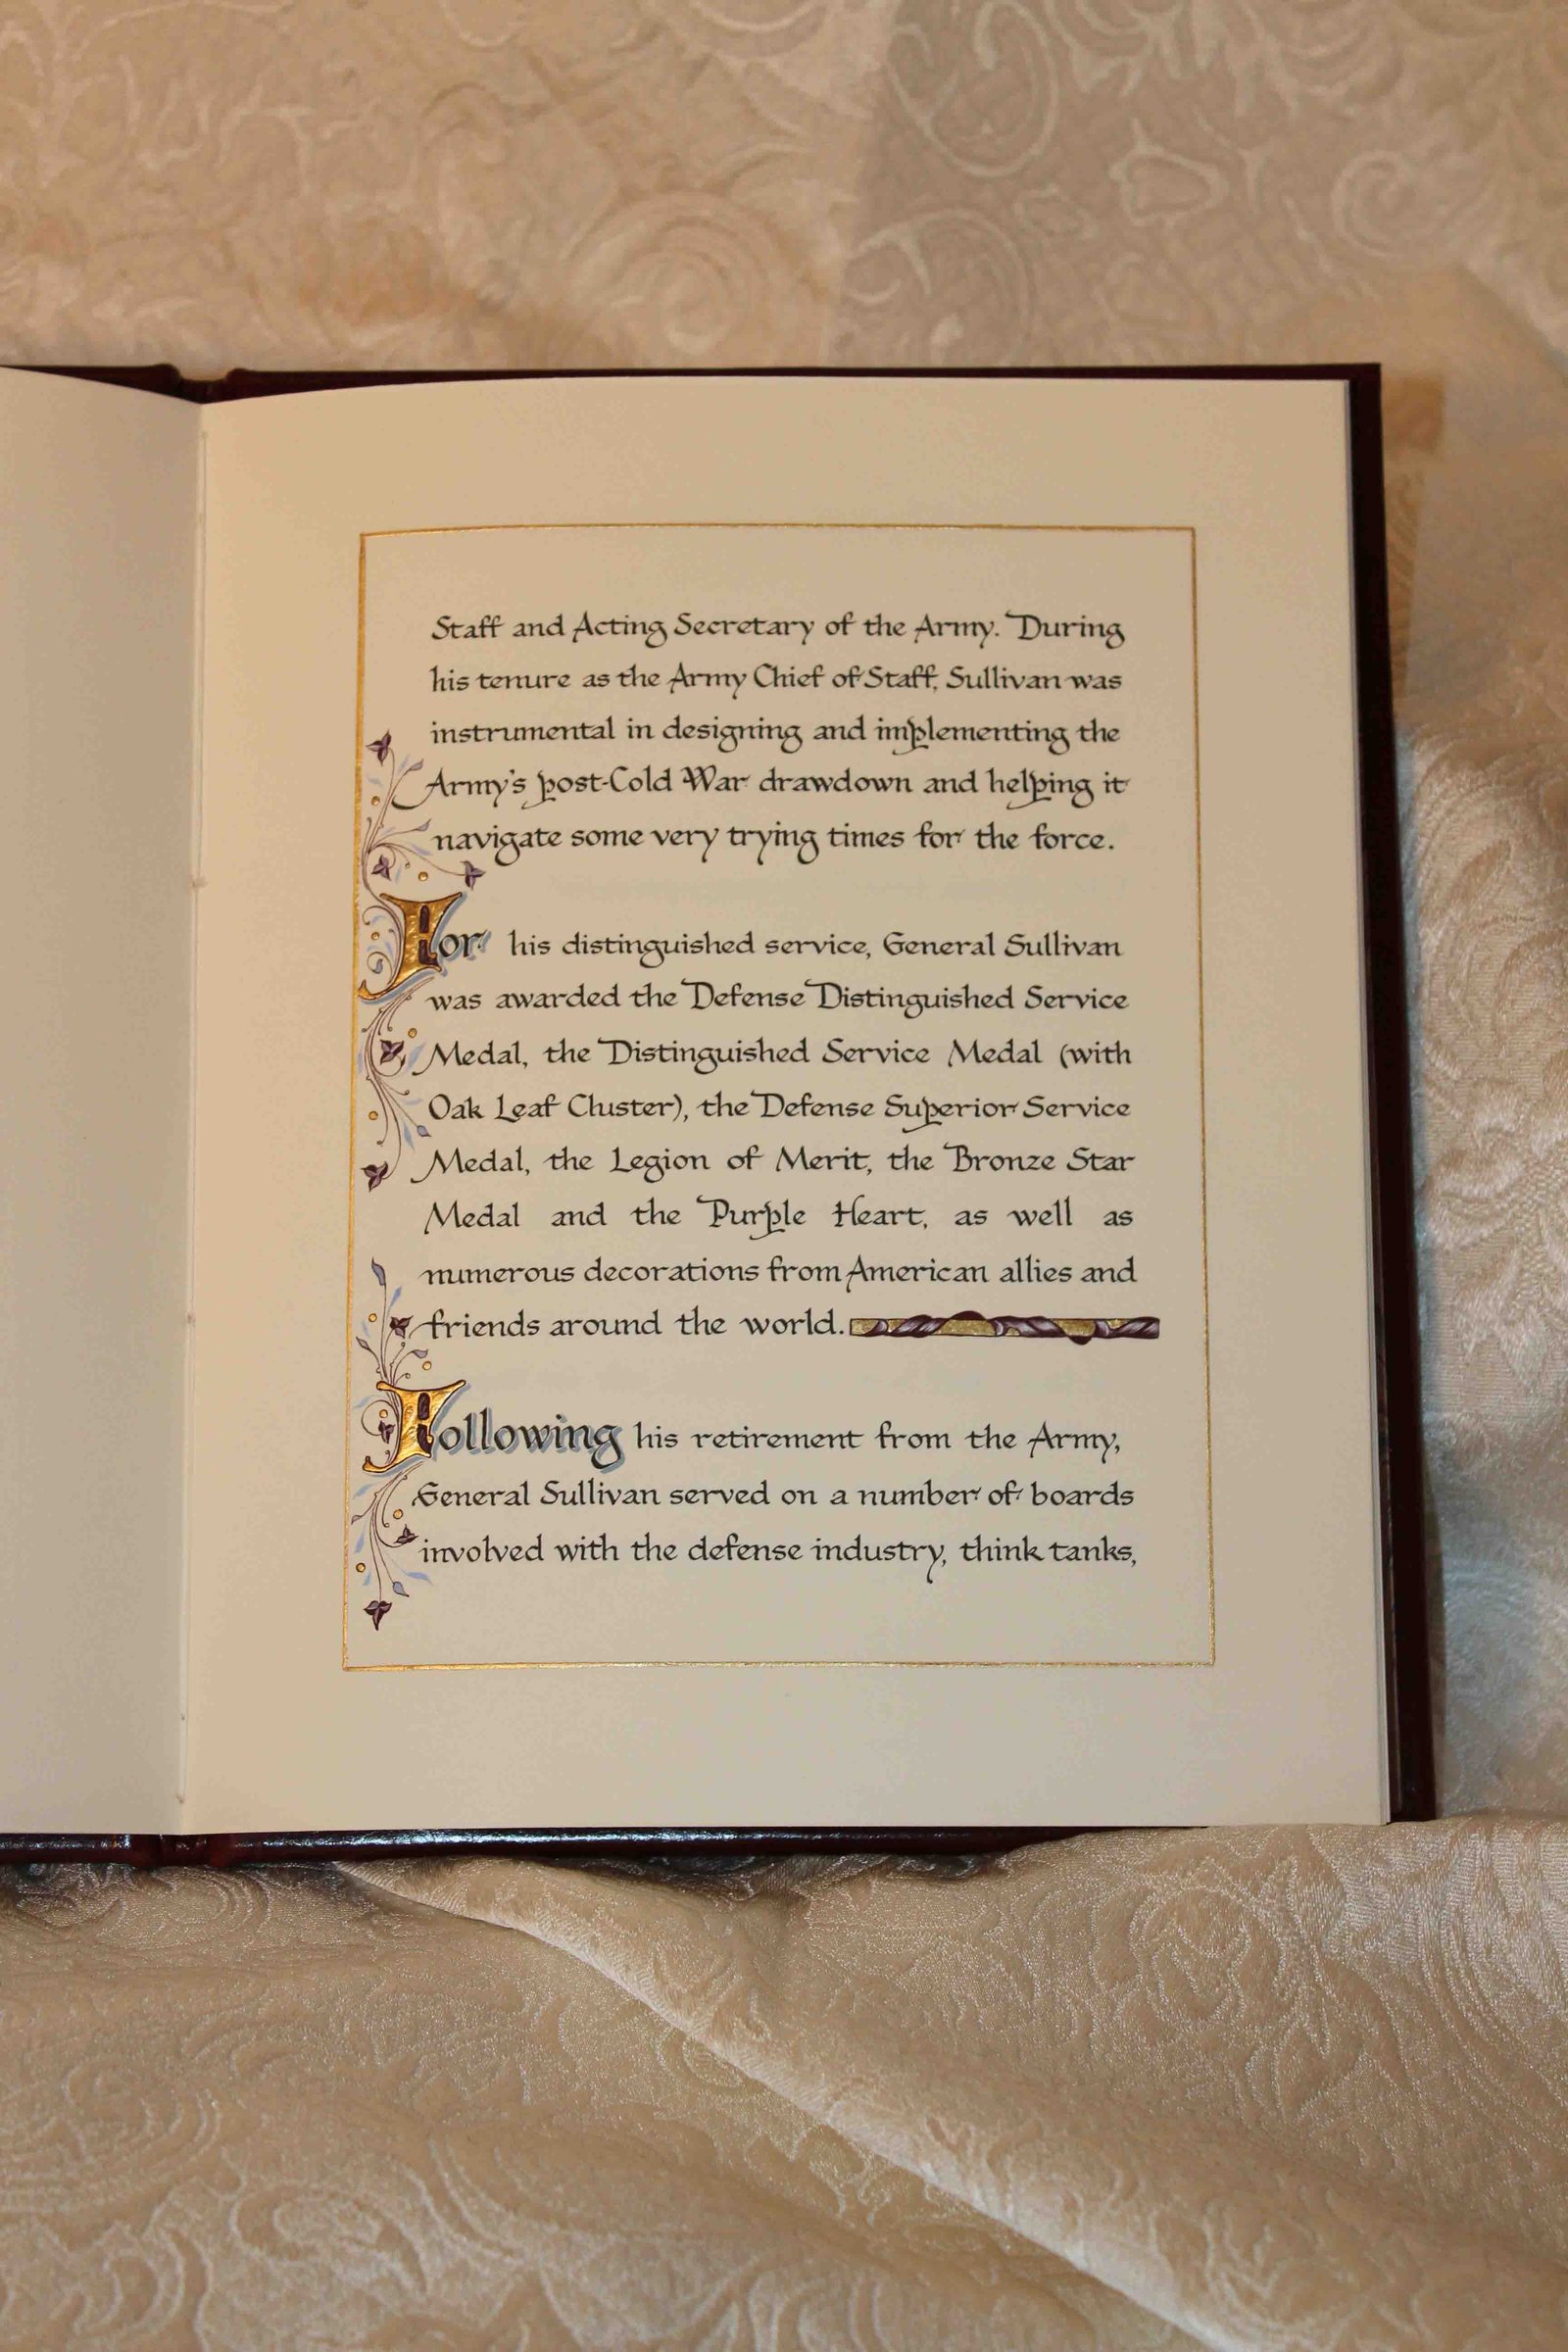 Staff and Acting Secretary of the Army. During
his tenure as the Army Chief of Staff, Sullivan was
instrumental in designing and implementing the
Army's post-Cold War drawdown and helping it
navigate some very trying times for the force.
For his distinguished service, General Sullivan
was awarded the Defense Distinguished Service
Medal, the Distinguished Service Medal (with
Oak Leaf Cluster), the Defense Superior Service
Medal, the Legion of Merit, the Bronze Star
Medal and the Purple Heart, as well as
numerous decorations from American allies and
friends around the world.
Following his retirement from the Army,
General Sullivan served on a number of boards
involved with the defense industry, think tanks,